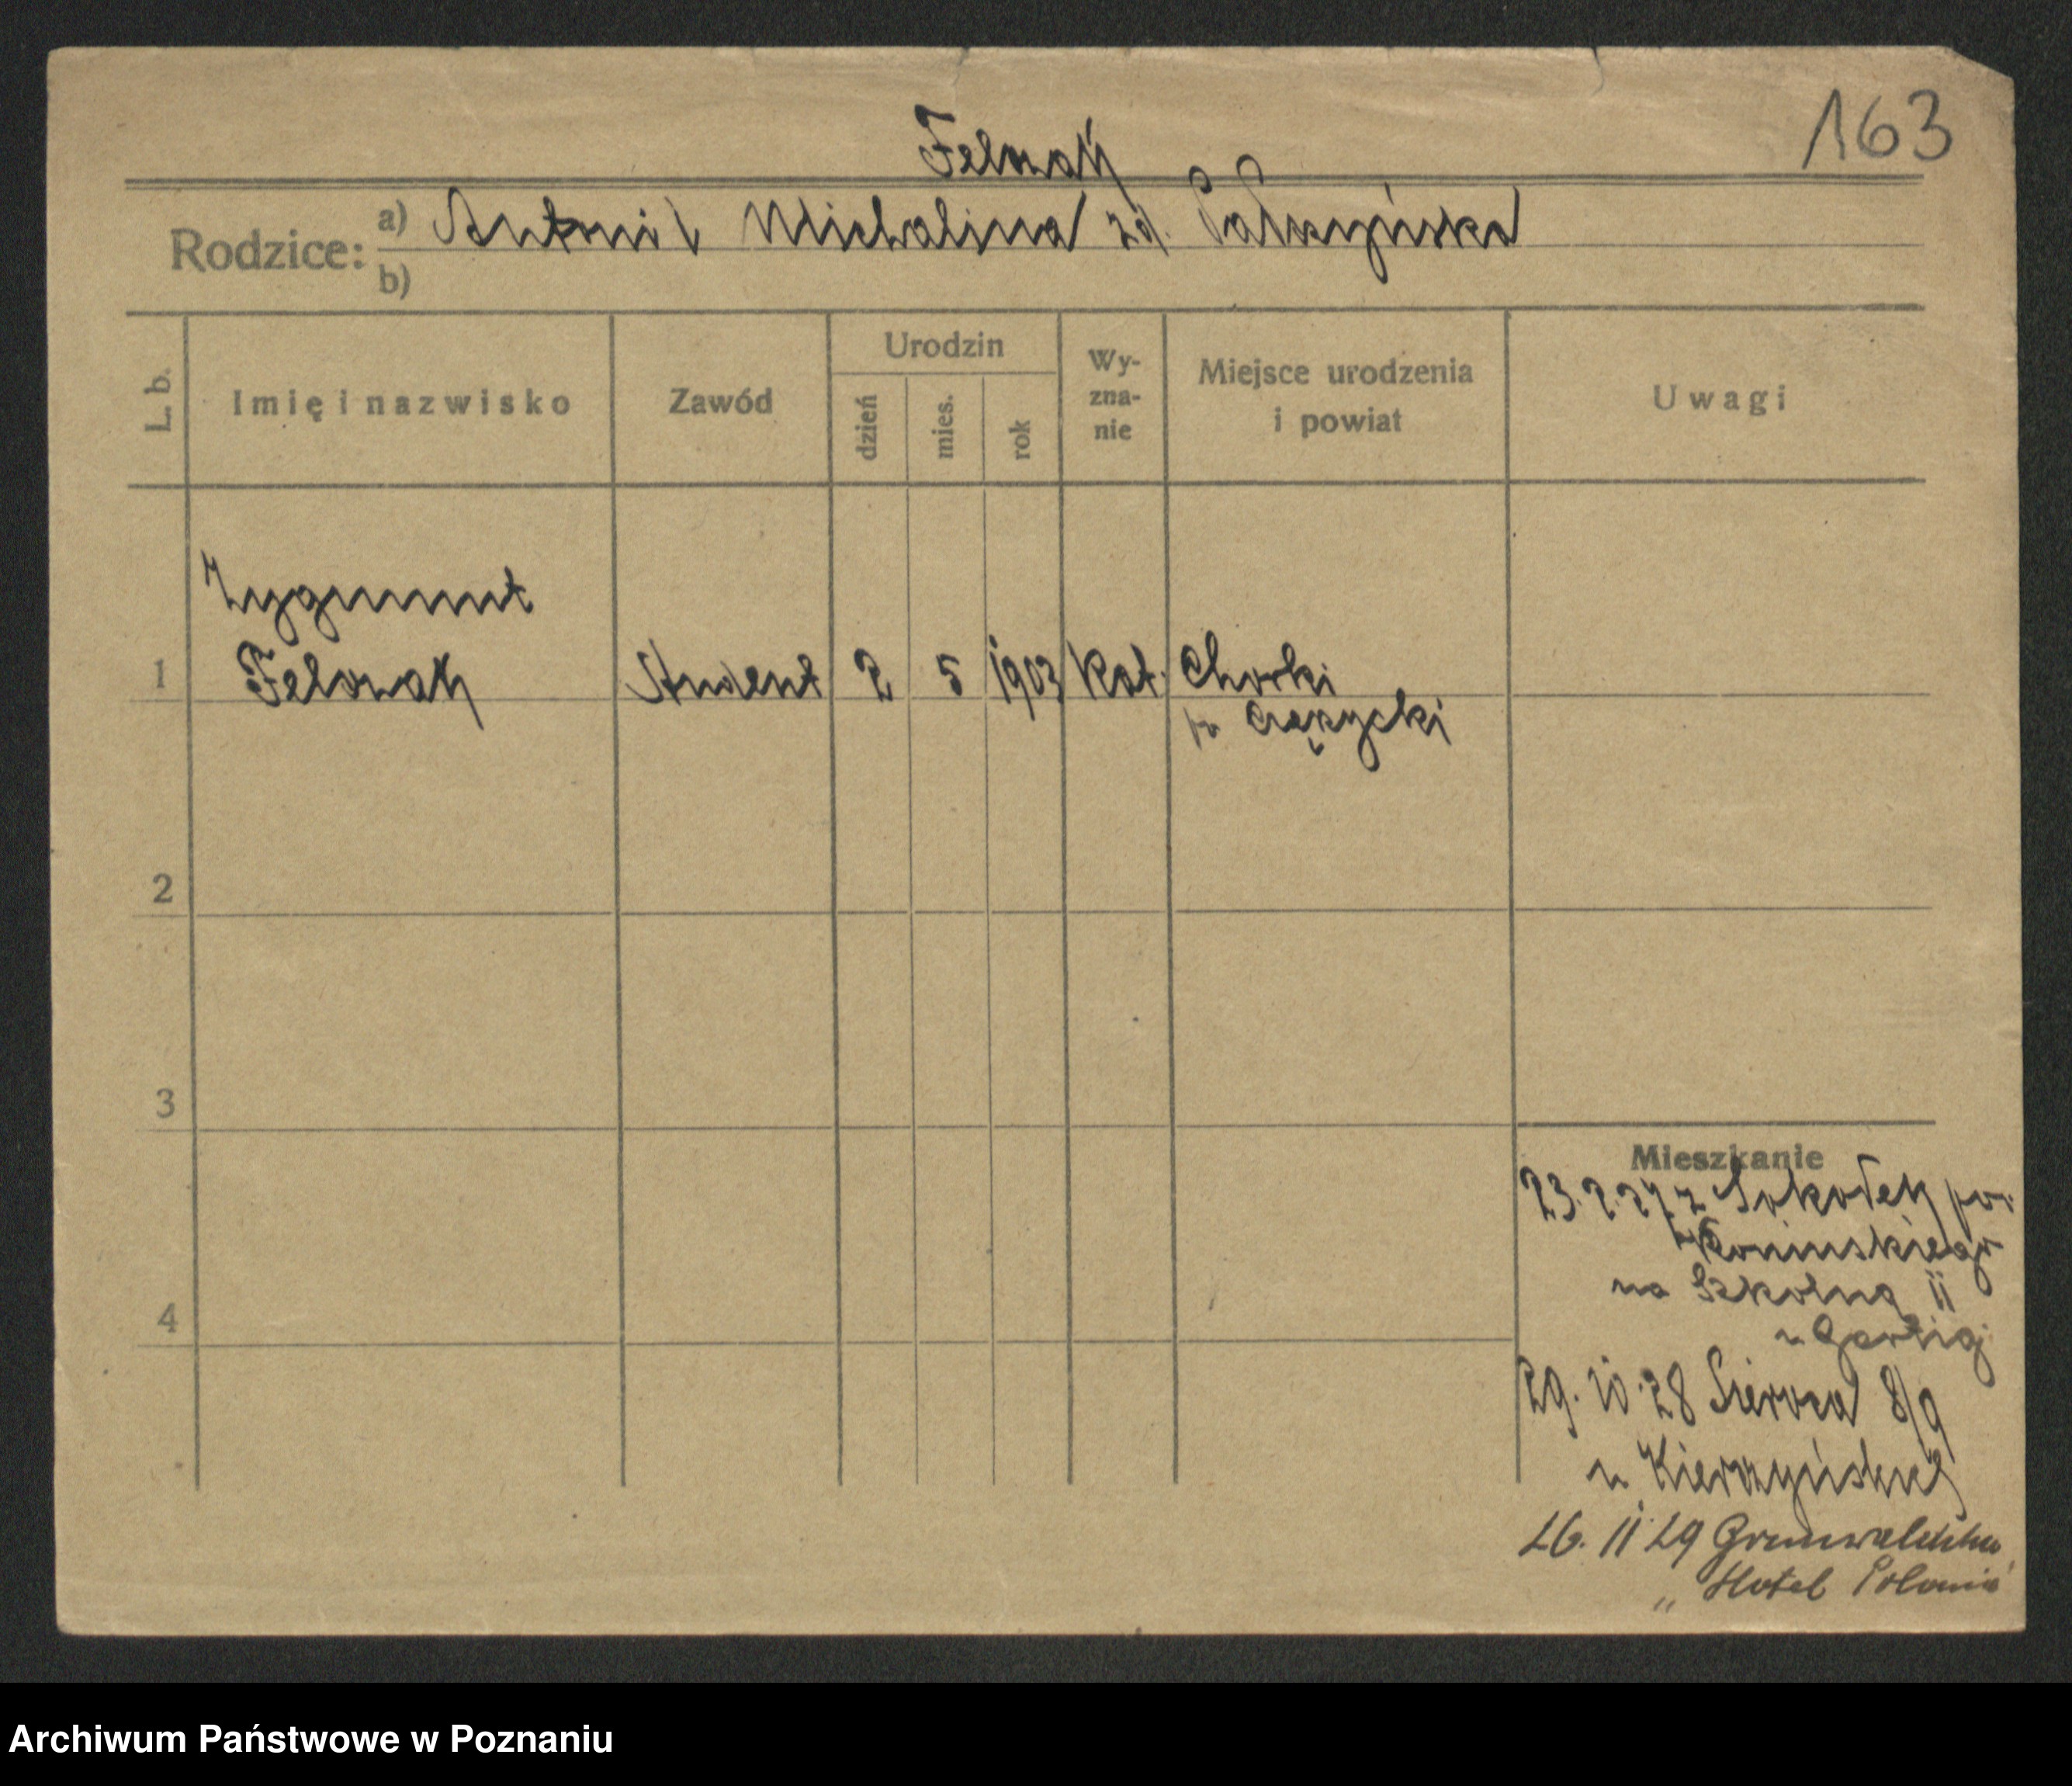 163
Felczak
Rodzice: a) Antoni i Michalina zd. Pałczyńska
b)
L. b. Imię i nazwisko Zawód Urodzin dzień mies. rok Wyznanie Miejsce urodzenia i powiat Uwagi
Zygmunt
1 Felczak Student 2 5 1903 kat. Chorki
p. Łęczycki
2
3
4
Mieszkanie
23.2.27 z Sokołek pow.
Konińskiego
na Szkolną 11
u
29.10.28 Sieroca 8/9
u
26.11.29 Grunwaldzka
„Hotel Polonia"
Archiwum Państwowe w Poznaniu